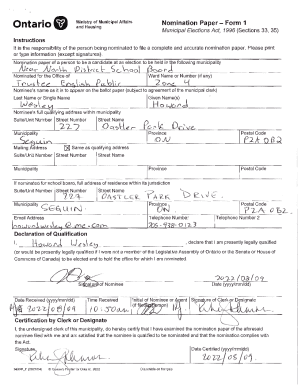 Ontario
Ministry of Municipal Affairs
and Housing
Nomination Paper – Form 1
Municipal Elections Act, 1996 (Sections 33, 35)
Instructions
It is the responsibility of the person being nominated to file a complete and accurate nomination paper. Please print
or type information (except signatures).
Nomination paper of a person to be a candidate at an election to be held in the following municipality
Near North District School Board
Nominated for the Office of
Ward Name or Number (if any)
Trustee English Public
Zone 4
Nominee's name as it is to appear on the ballot paper (subject to agreement of the municipal clerk)
Last Name or Single Name
Given Name(s)
Wesley
Howard
Nominee's full qualifying address within municipality
Suite/Unit Number
Street Number
Street Name
227
Oastler Park Drive
Municipality
Province
Postal Code
Seguin
ON
P2A 0B2
Mailing Address
Same as qualifying address
Suite/Unit Number
Street Number
Street Name
Municipality
Province
Postal Code
If nominated for school board, full address of residence within its jurisdiction
Suite/Unit Number
Street Number
Street Name
227
OASTLER PARK DRIVE
Municipality
Province
Postal Code
SEGUIN
ON
P2A 0B2
Email Address
Telephone Number
Telephone Number 2
705-938-0123
Declaration of Qualification
I, Howard Wesley, declare that I am presently legally qualified
(or would be presently legally qualified if I were not a member of the Legislative Assembly of Ontario or the Senate or House of
Commons of Canada) to be elected and to hold the office for which I am nominated.
2022/08/09
Signature of Nominee
Date (yyyy/mm/dd)
Date Received (yyyy/mm/dd)
Time Received
Initial of Nominee or Agent
Signature of Clerk or Designate
2022/08/09
10:50am
Certification by Clerk or Designate
I, the undersigned clerk of this municipality, do hereby certify that I have examined the nomination paper of the aforesaid
nominee filed with me and am satisfied that the nominee is qualified to be nominated and that the nomination complies with
the Act.
Signature
Date Certified (yyyy/mm/dd)
2022/08/09